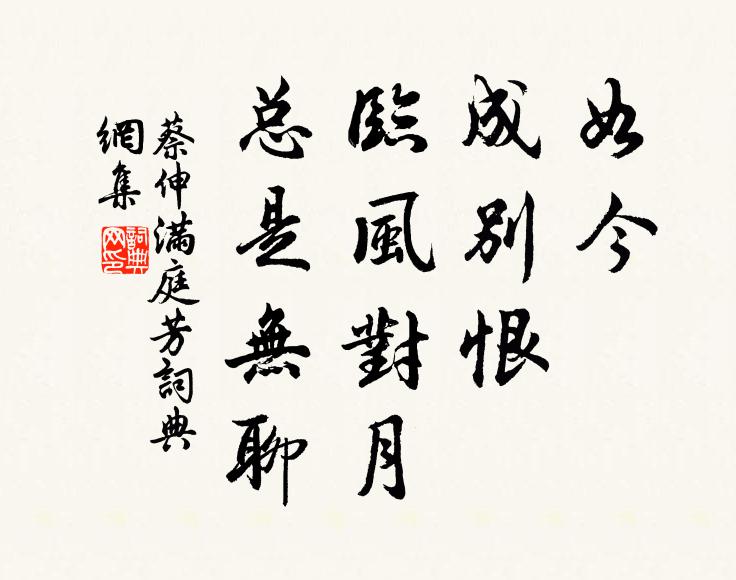 如今
成別恨
臨風對月
总是無聊
蔡伸滿庭芳詞典
網集
詞典
网印